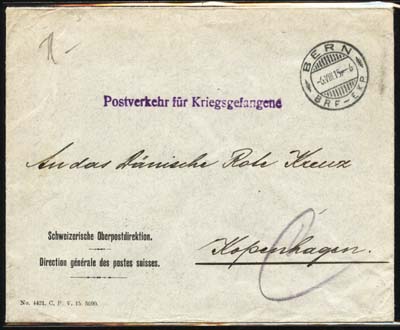 BERN
-5.VIII.15.-6
BRF-EXP.
Postverkehr für Kriegsgefangene
An das Dänische Rote Kreuz
Kopenhagen.
Schweizerische Oberpostdirektion.
Direction générale des postes suisses.
No. 4421. C. P. V. 15. 5000.